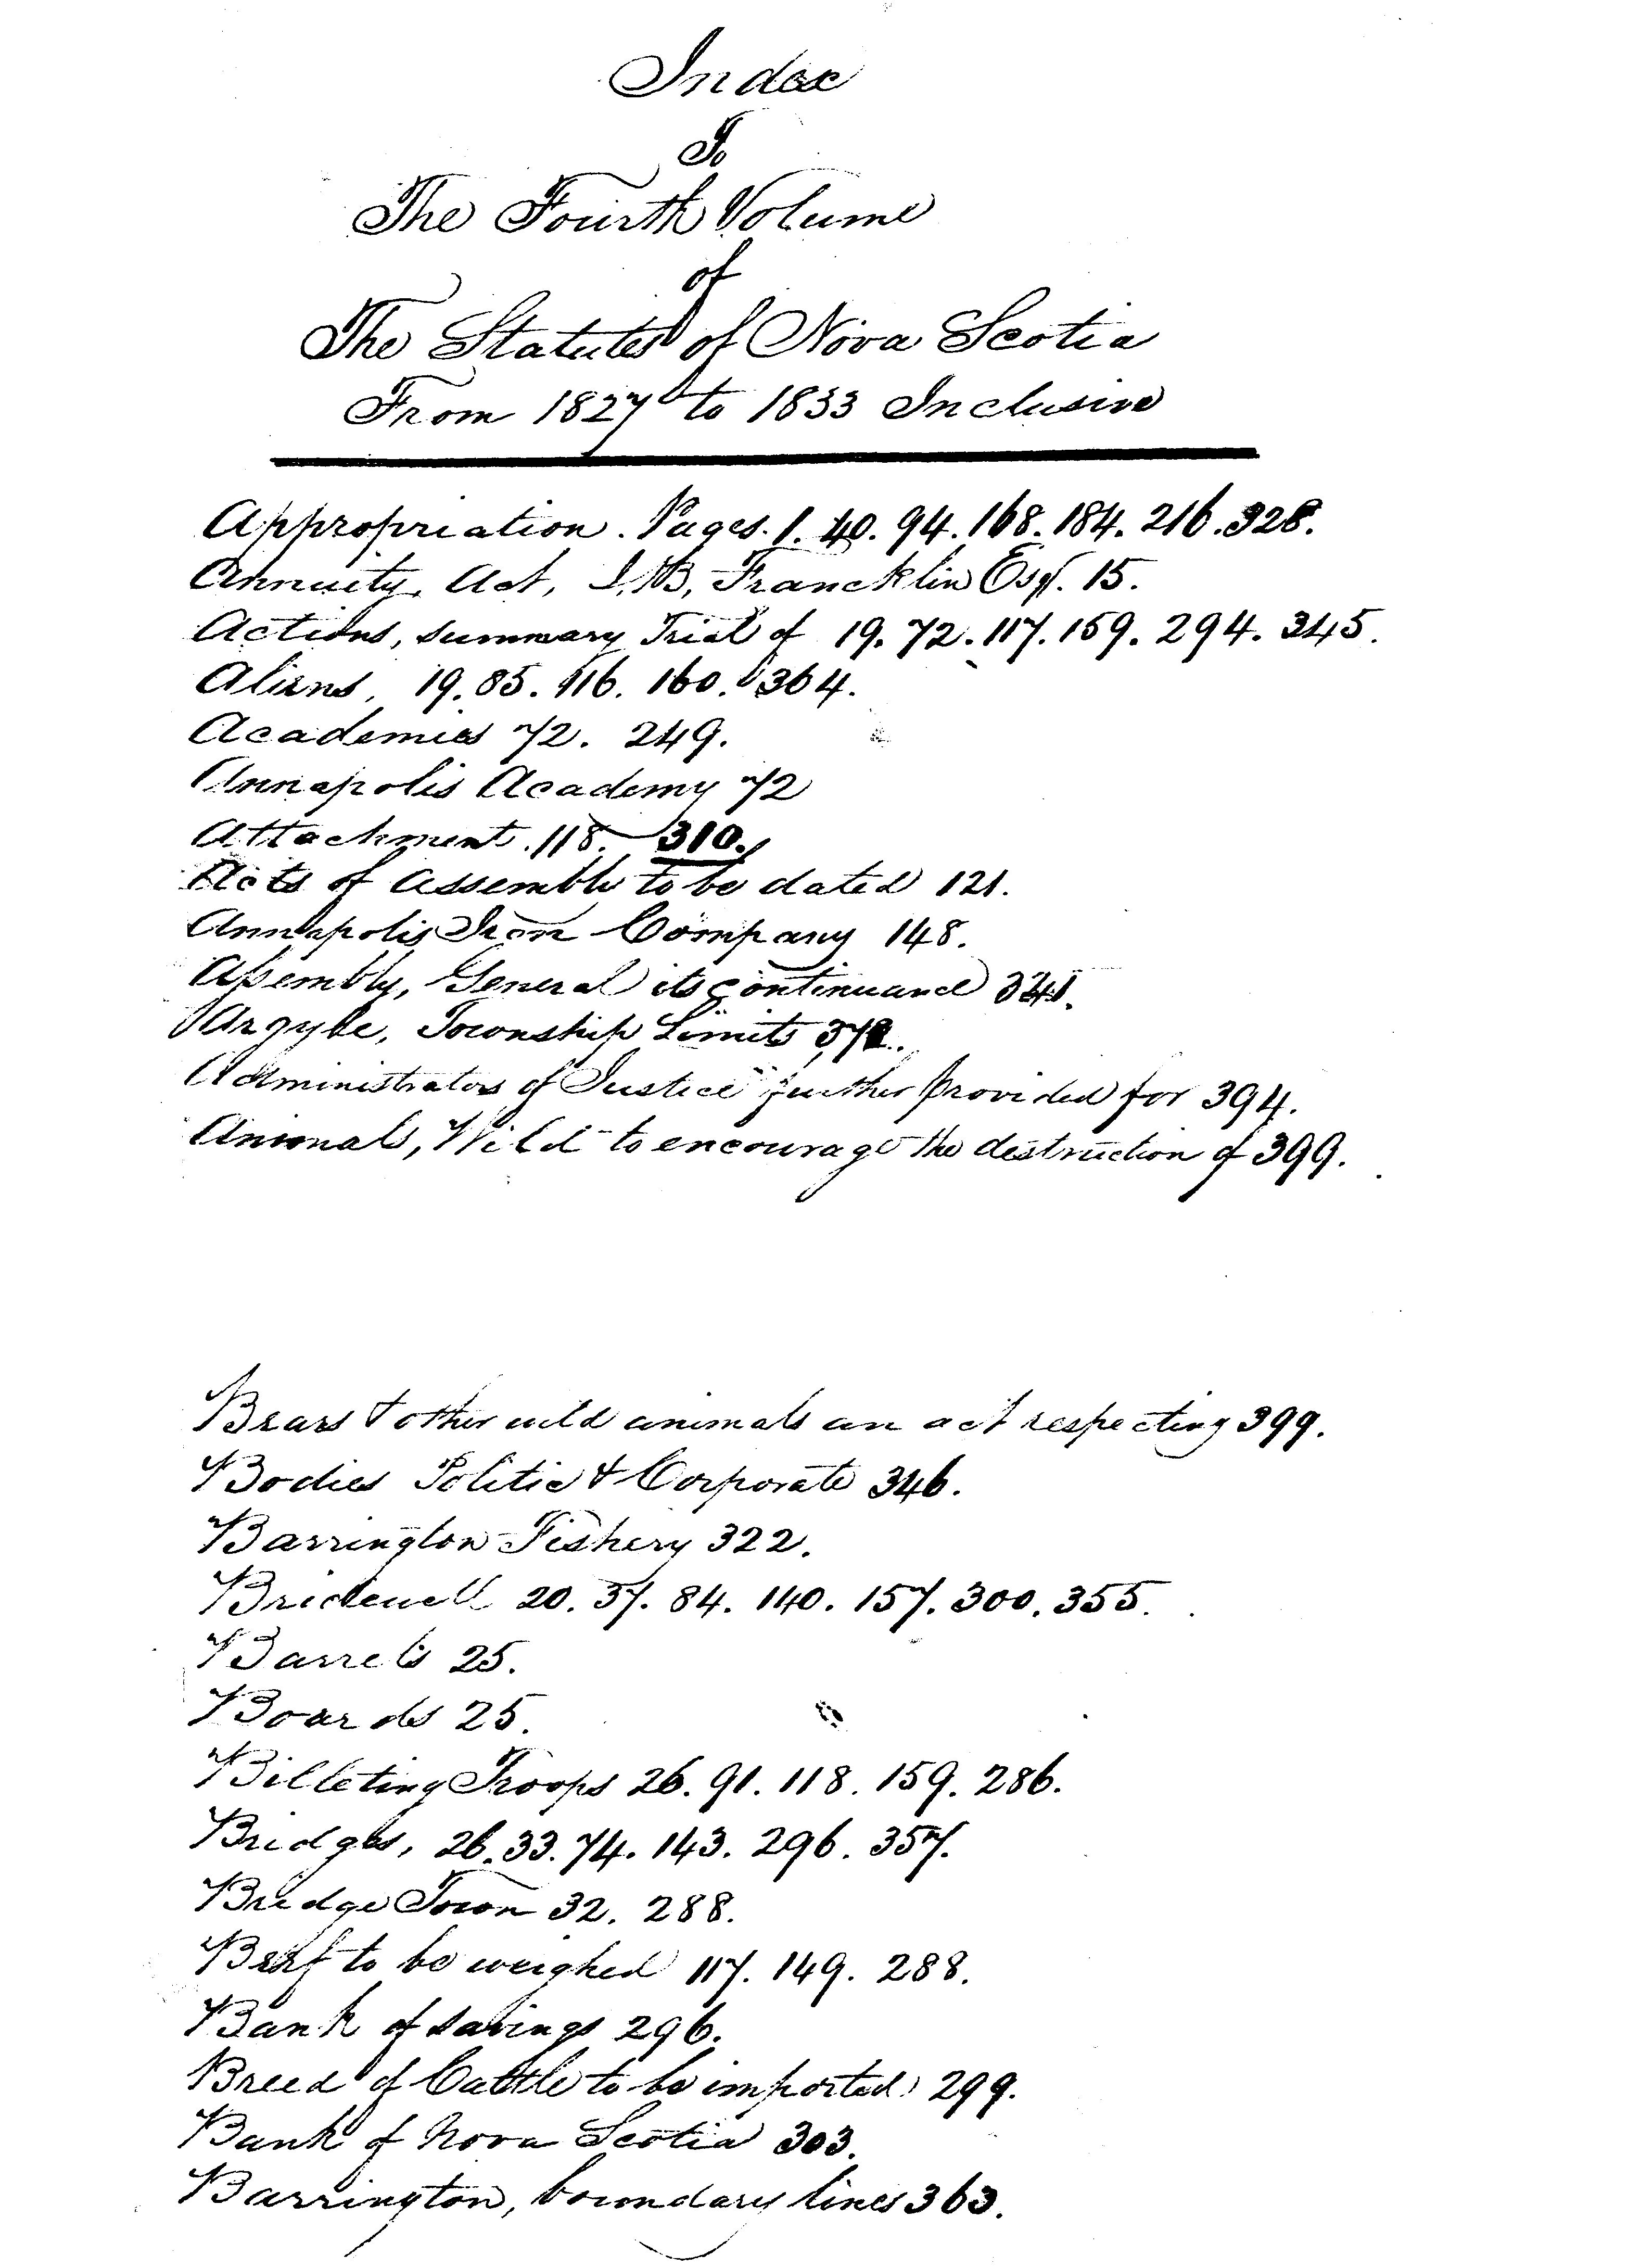 Index
To
The Fourth Volume
of
The Statutes of Nova Scotia
From 1827 to 1833 Inclusive
Appropriation. Pages. 1. 40. 94. 168. 184. 216. 328.
Annuity, Act, J, B, Francklin Esqr. 15.
Actions, summary Trial of 19. 72. 117. 159. 294. 345.
Aliens, 19. 85. 116. 160. 364.
Academies 72. 249.
Annapolis Academy 72
Attachment. 118. 310.
Acts of Assembly to be dated 121.
Annapolis Iron Company 148.
Assembly, General its continuance 341.
Argyle, Township Limits
Administrators of Justice further provided for 394.
Animals, Wild to encourage the destruction of 399.
Bears & other wild animals an act respecting 399.
Bodies Politic & Corporate 346.
Barrington Fishery 322.
Bridewell 20. 37. 84. 140. 157. 300. 355.
Barrels 25.
Boards 25.
Billeting Troops 26. 91. 118. 159. 286.
Bridges, 26. 33. 74. 143. 296. 357.
Bridge Town 32. 288.
Beef to be weighed 117. 149. 288.
Bank of savings 296.
Breed of Cattle to be imported 299.
Bank of Nova Scotia 303.
Barrington, boundary lines 363.